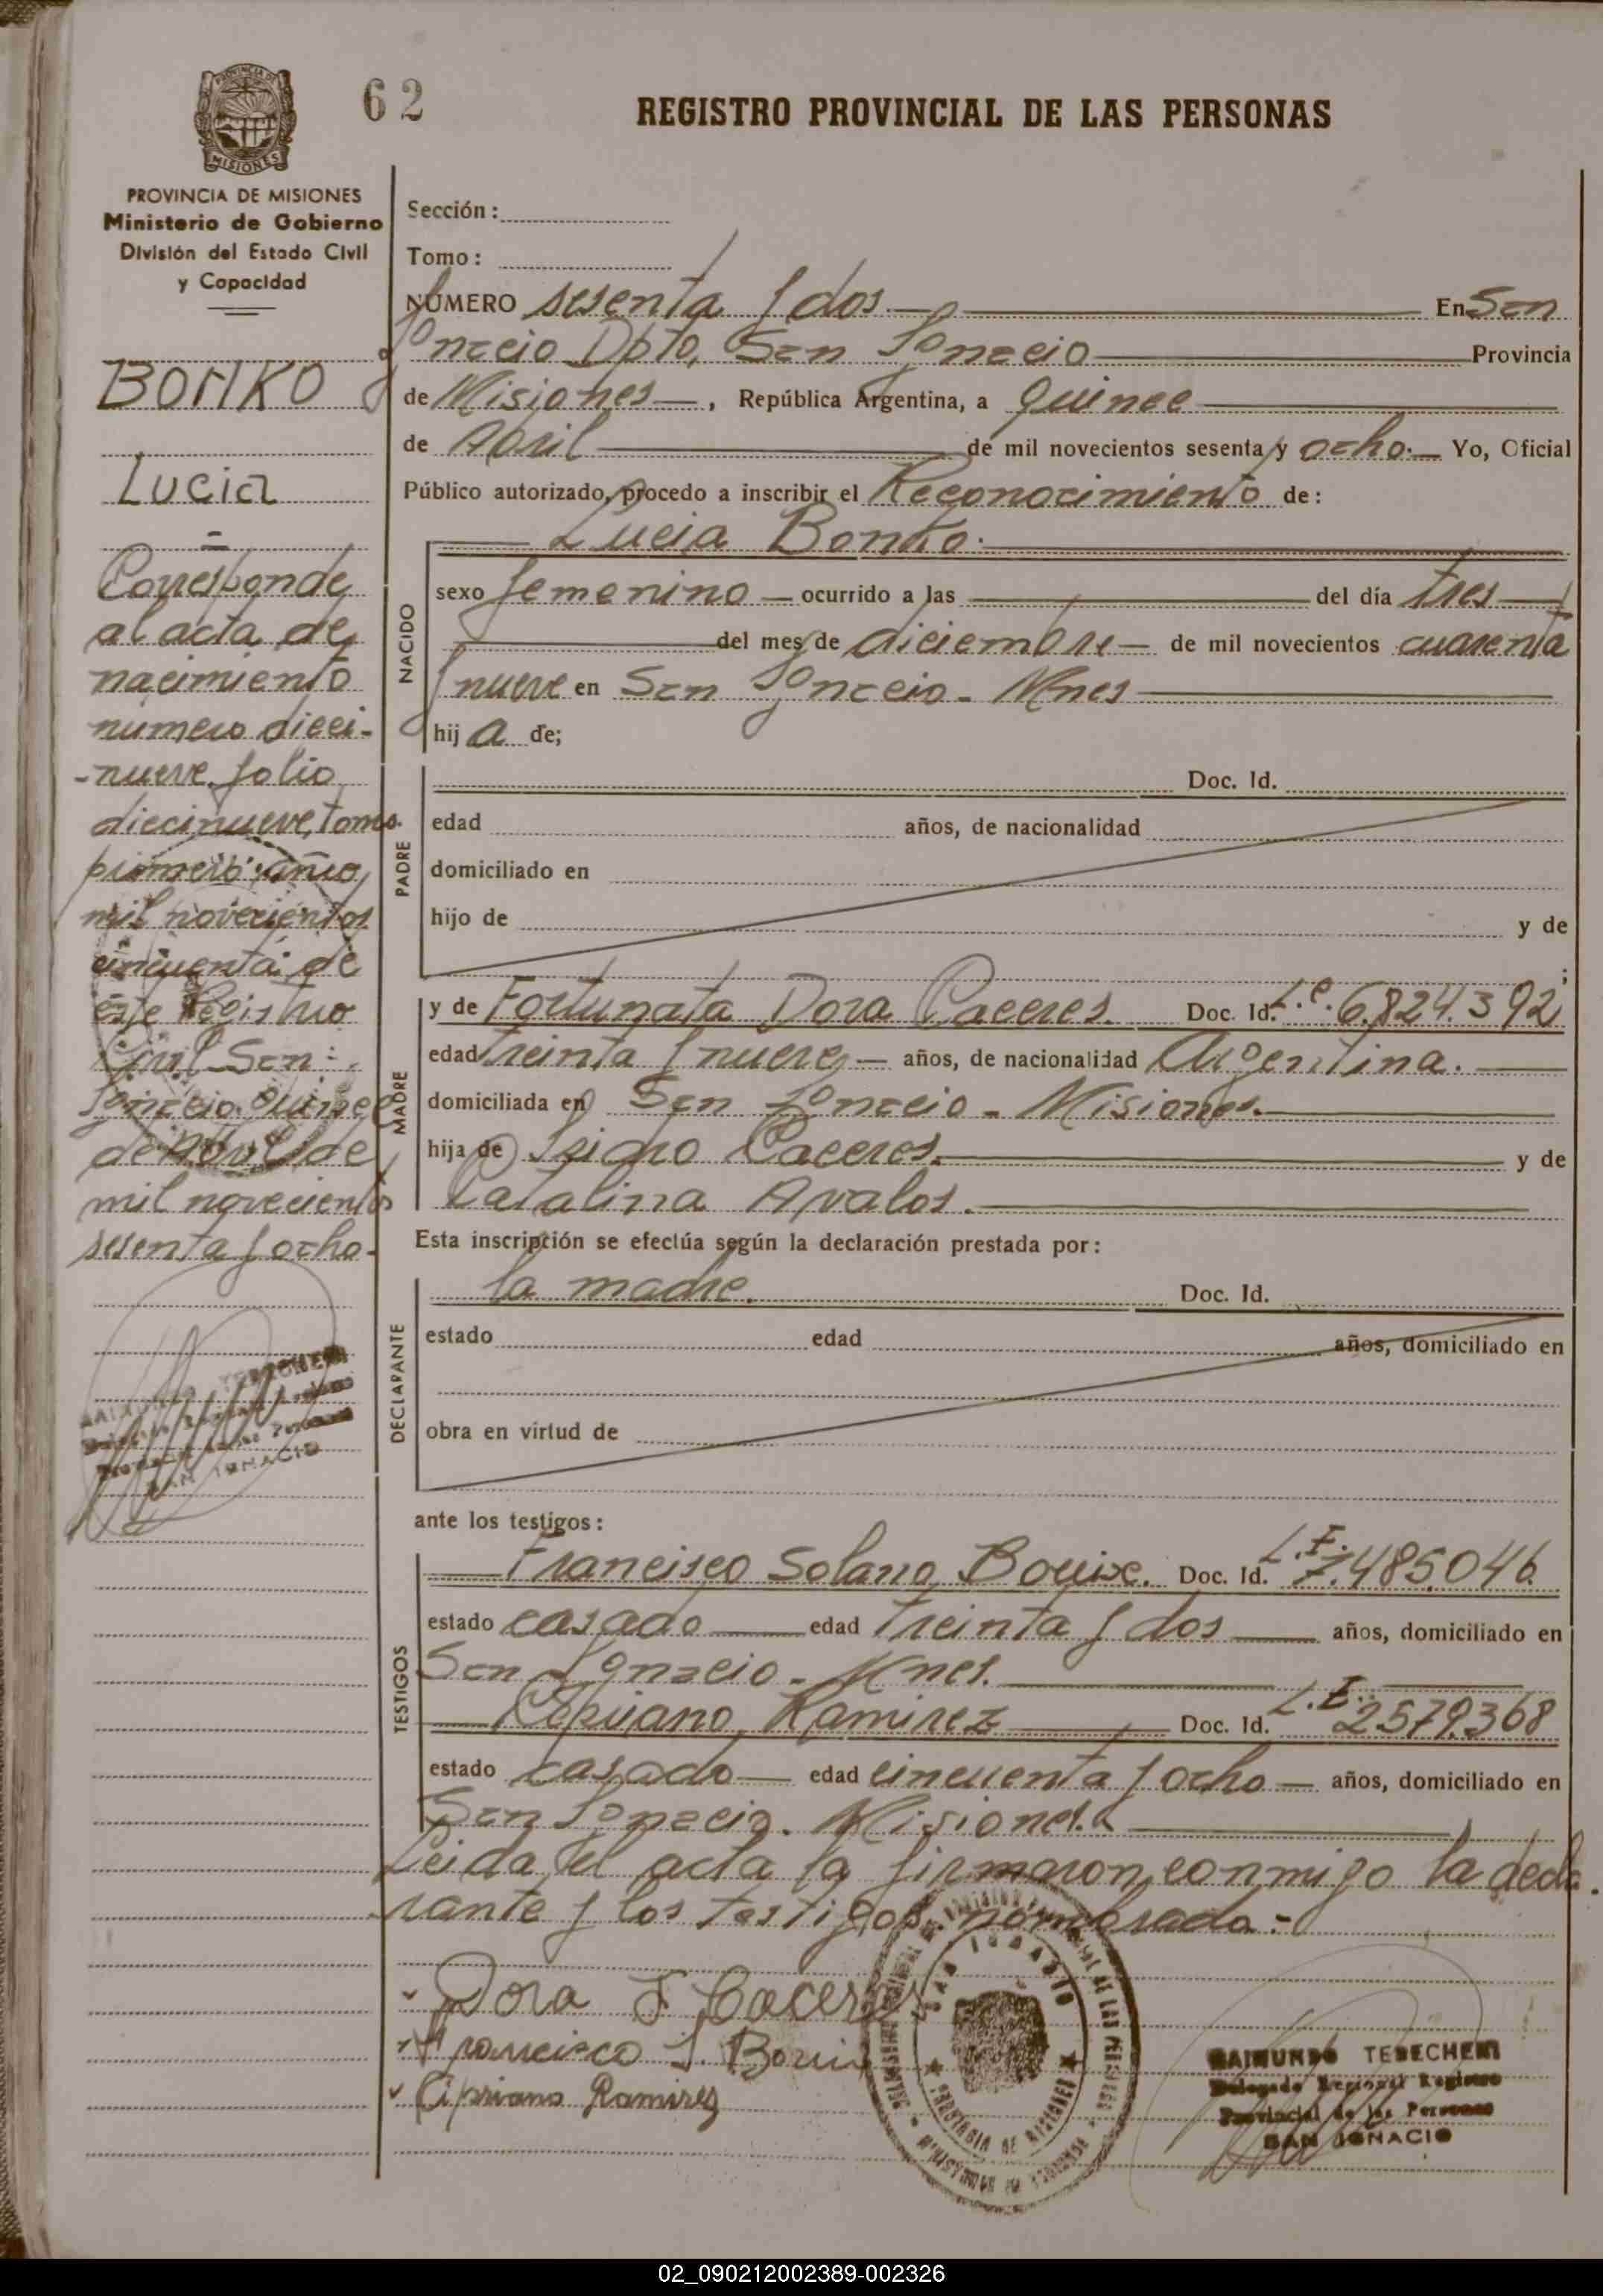 62
REGISTRO PROVINCIAL DE LAS PERSONAS
PROVINCIA DE MISIONES
MISIONES
PROVINCIA DE MISIONES
Ministerio de Gobierno
División del Estado Civil
y Capacidad
BONKO
Lucia
Corresponde
al acta de
nacimiento
numero dieci-
-nueve folio
diecinueve, tomo
primero año
mil novecientos
cincuenta de
este Registro
Civil San
Ignacio Quince
de Abril de
mil novecientos
sesenta y ocho.
SAN IGNACIO
Sección:
Tomo:
NÚMERO sesenta y dos. En San
Ignacio Dpto, San Ignacio Provincia
de Misiones, República Argentina, a quince
de Abril de mil novecientos sesenta y ocho. Yo, Oficial
Público autorizado, procedo a inscribir el Reconocimiento de:
Lucia Bonko.
NACIDO
sexo femenino ocurrido a las del día tres
del mes de diciembre de mil novecientos cuarenta
y nueve en San Ignacio - Mnes
hija de;
PADRE
Doc. Id.
edad años, de nacionalidad
domiciliado en
hijo de y de
MADRE
y de Fortunata Dora Caceres. Doc. Id. L.C. 6.824.392
edad treinta y nueve años, de nacionalidad Argentina.
domiciliada en San Ignacio - Misiones.
hija de Isidro Caceres. y de
Catalina Avalos.
Esta inscripción se efectúa según la declaración prestada por:
DECLARANTE
la madre. Doc. Id.
estado edad años, domiciliado en
obra en virtud de
ante los testigos:
TESTIGOS
Francisco Solano Doc. Id. L.E. 7.485.046
estado casado edad treinta y dos años, domiciliado en
San Ignacio - Mnes.
Cipriano Ramirez Doc. Id. L.E. 2.579.368
estado casado edad cincuenta y ocho años, domiciliado en
San Ignacio. Misiones.
Leida el acta la firmaron conmigo la decla
rante y los testigos nombrado.-
Dora F Caceres
Francisco S.
Cipriano Ramirez
SAN IGNACIO
PROVINCIA DE MISIONES
RAIMUNDO
Delegado Regional Registro
Provincial de las Personas
SAN IGNACIO
02_090212002389-002326